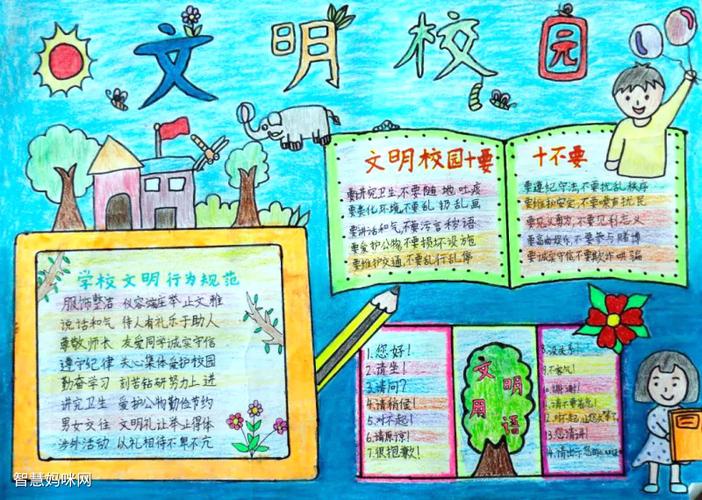 文明校园
文明校园十要
要讲究卫生,不要随地吐痰
要美化环境,不要乱扔乱画
要讲话和气,不要污言秽语
要爱护公物,不要损坏设施
要维护交通,不要乱行乱停
十不要
要遵纪守法,不要扰乱秩序
要维护安定,不要扰民
要见义勇为,不要见利忘义
要高尚娱乐,不要参与赌博
要诚实守信不要欺诈哄骗
学校文明行为规范
服饰整洁 仪容端庄举止文雅
说话和气 待人有礼乐于助人
尊敬师长 友爱同学诚实守信
遵守纪律 关心集体爱护校园
勤奋学习 刻苦钻研努力上进
讲究卫生 爱护公物勤俭节约
男女交往 文明礼让举止得体
涉外活动 以礼相待不卑不亢
1.您好!
2.请坐!
3.请问?
4.请稍侯!
5.对不起!
6.请原谅!
7.很抱歉!
文明用语
8.没关系!
9.不客气!
谢谢!
请不要着急!
对不起让您久等了
13.您请讲!
请出示您的
智慧妈咪网